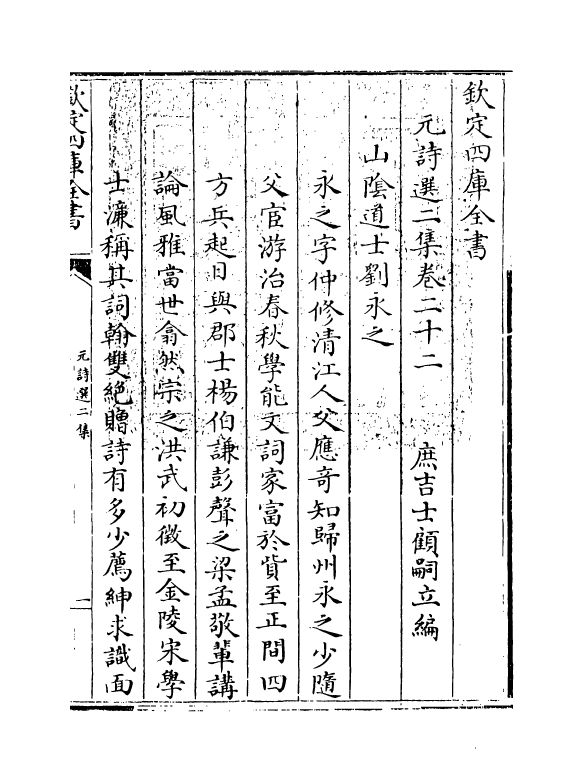 欽定四庫全書
元詩選二集卷二十二　庶吉士顧嗣立編
山陰道士劉永之
永之字仲修清江人父應奇知歸州永之少隨
父宦游治春秋學能文詞家富於貲至正間四
方兵起日與郡士楊伯謙彭聲之梁孟敬輩講
論風雅當世翕然宗之洪武初徵至金陵宋學
士濂稱其詞翰雙絶贈詩有多少薦紳求識面
欽定四庫全書
元詩選二集
一